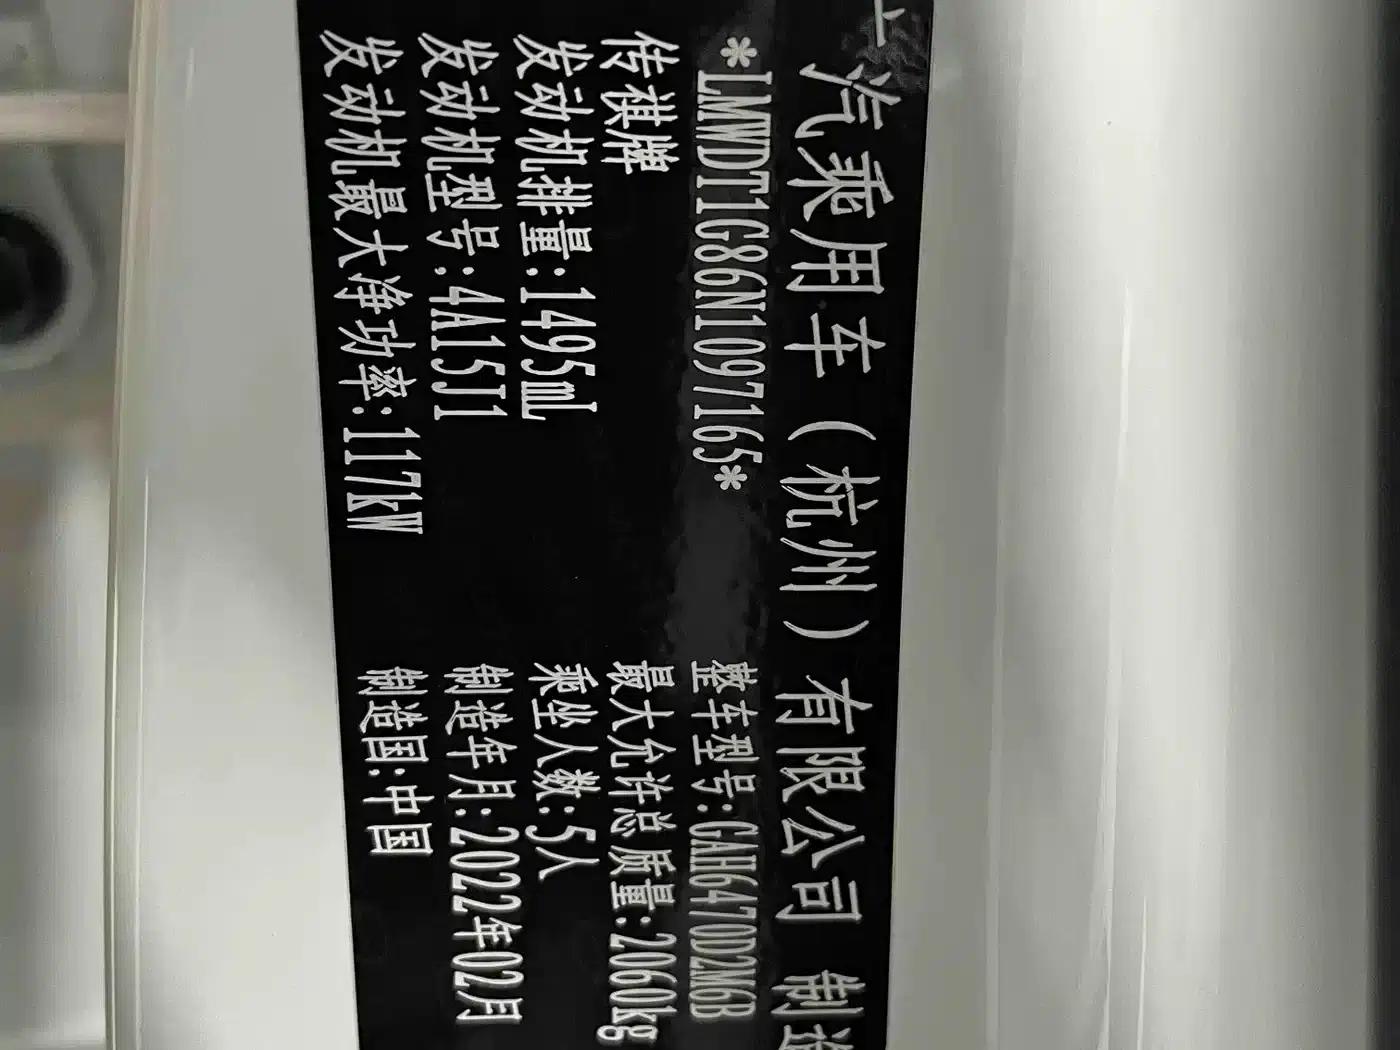 广汽乘用车（杭州）有限公司 制造
*LMWDT1G86N1097165*
整车型号:GAH6470D2M6B
传祺牌
最大允许总质量:2060kg
发动机排量:1495mL
乘坐人数:5人
发动机型号:4A15J1
制造年月:2022年02月
发动机最大净功率:117kW
制造国:中国